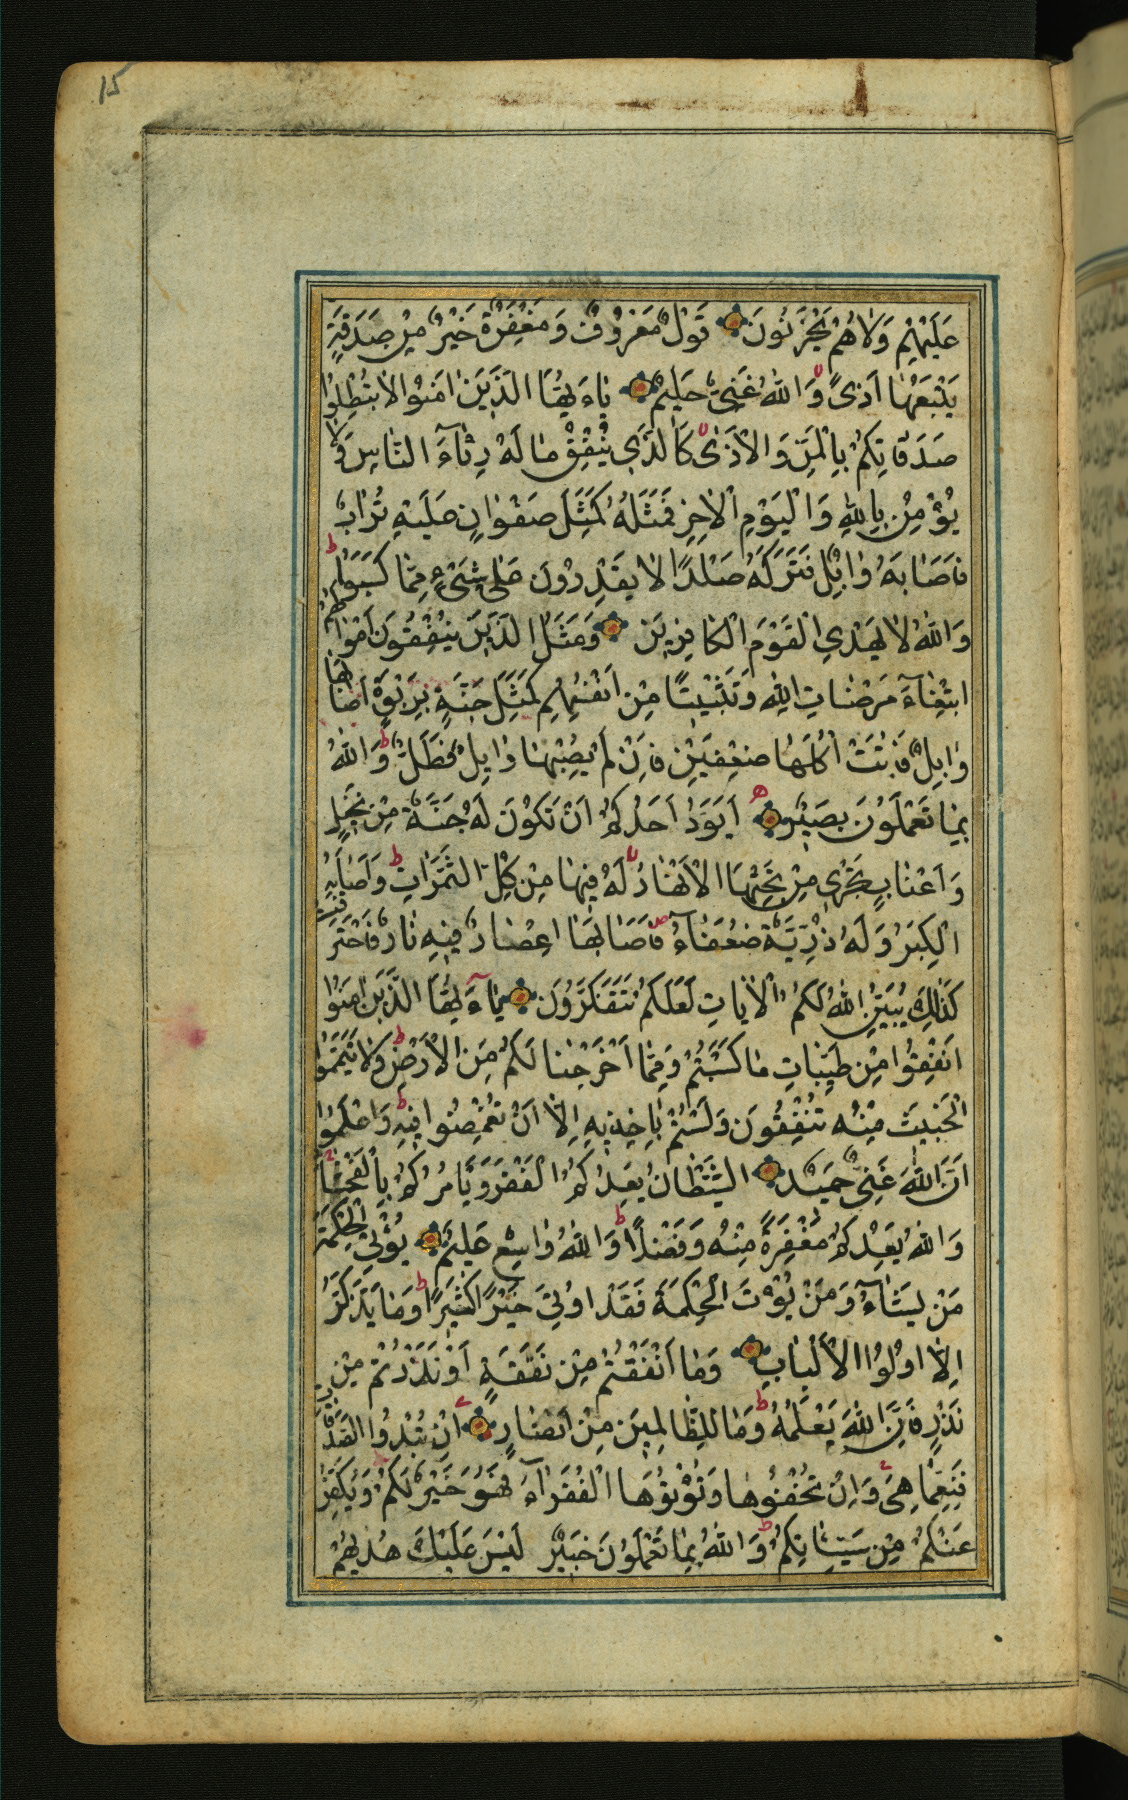 15
عَلَيْهِمْ وَلَا هُمْ يَحْزَنُونَ قَوْلٌ مَعْرُوفٌ وَمَغْفِرَةٌ خَيْرٌ مِنْ صَدَقَةٍ
يَتْبَعُهَا اَذًى وَاللّٰهُ غَنِيٌّ حَلِيمٌ يَاءَيُّهَا الَّذِينَ اٰمَنُوا لَا تُبْطِلُوا
صَدَقَاتِكُمْ بِالْمَنِّ وَالْاَذٰى كَالَّذِي يُنْفِقُ مَا لَهُ رِئَاءَ النَّاسِ وَلَا
يُؤْمِنُ بِاللّٰهِ وَالْيَوْمِ الْاٰخِرِ فَمَثَلُهُ كَمَثَلِ صَفْوَانٍ عَلَيْهِ تُرَابٌ
فَاَصَابَهُ وَابِلٌ فَتَرَكَهُ صَلْدًا لَا يَقْدِرُونَ عَلٰى شَيْءٍ مِمَّا كَسَبُوا ط
وَاللّٰهُ لَا يَهْدِي الْقَوْمَ الْكَافِرِينَ وَمَثَلُ الَّذِينَ يُنْفِقُونَ اَمْوَالَهُمُ
ابْتِغَاءَ مَرْضَاتِ اللّٰهِ وَتَثْبِيتًا مِنْ اَنْفُسِهِمْ كَمَثَلِ جَنَّةٍ بِرَبْوَةٍ اَصَابَهَا
وَابِلٌ فَاٰتَتْ اُكُلَهَا ضِعْفَيْنِ فَاِنْ لَمْ يُصِبْهَا وَابِلٌ فَطَلٌّ ط وَاللّٰهُ
بِمَا تَعْمَلُونَ بَصِيرٌ ه اَيَوَدُّ اَحَدُكُمْ اَنْ تَكُونَ لَهُ جَنَّةٌ مِنْ نَخِيلٍ
وَاَعْنَابٍ تَجْرِي مِنْ تَحْتِهَا الْاَنْهَارُ لَهُ فِيهَا مِنْ كُلِّ الثَّمَرَاتِ ط وَاَصَابَهُ
الْكِبَرُ وَلَهُ ذُرِّيَّةٌ ضُعَفَاءُ ص فَاَصَابَهَا اِعْصَارٌ فِيهِ نَارٌ فَاحْتَرَقَتْ
كَذٰلِكَ يُبَيِّنُ اللّٰهُ لَكُمُ الْاٰيَاتِ لَعَلَّكُمْ تَتَفَكَّرُونَ يَاءَيُّهَا الَّذِينَ اٰمَنُوا
اَنْفِقُوا مِنْ طَيِّبَاتِ مَا كَسَبْتُمْ وَمِمَّا اَخْرَجْنَا لَكُمْ مِنَ الْاَرْضِ ط وَلَا تَيَمَّمُوا
الْخَبِيثَ مِنْهُ تُنْفِقُونَ وَلَسْتُمْ بِاٰخِذِيهِ اِلَّا اَنْ تُغْمِضُوا فِيهِ ط وَاعْلَمُوا
اَنَّ اللّٰهَ غَنِيٌّ حَمِيدٌ الشَّيْطَانُ يَعِدُكُمُ الْفَقْرَ وَيَأْمُرُكُمْ بِالْفَحْشَاءِ
وَاللّٰهُ يَعِدُكُمْ مَغْفِرَةً مِنْهُ وَفَضْلًا ط وَاللّٰهُ وَاسِعٌ عَلِيمٌ يُؤْتِي الْحِكْمَةَ
مَنْ يَشَاءُ وَمَنْ يُؤْتَ الْحِكْمَةَ فَقَدْ اُوتِيَ خَيْرًا كَثِيرًا ط وَمَا يَذَّكَّرُ
اِلَّا اُولُوا الْاَلْبَابِ وَمَا اَنْفَقْتُمْ مِنْ نَفَقَةٍ اَوْ نَذَرْتُمْ مِنْ
نَذْرٍ فَاِنَّ اللّٰهَ يَعْلَمُهُ ط وَمَا لِلظَّالِمِينَ مِنْ اَنْصَارٍ اِنْ تُبْدُوا الصَّدَقَاتِ
فَنِعِمَّا هِيَ وَاِنْ تُخْفُوهَا وَتُؤْتُوهَا الْفُقَرَاءَ فَهُوَ خَيْرٌ لَكُمْ وَيُكَفِّرُ
عَنْكُمْ مِنْ سَيِّئَاتِكُمْ ط وَاللّٰهُ بِمَا تَعْمَلُونَ خَبِيرٌ لَيْسَ عَلَيْكَ هُدٰيهُمْ